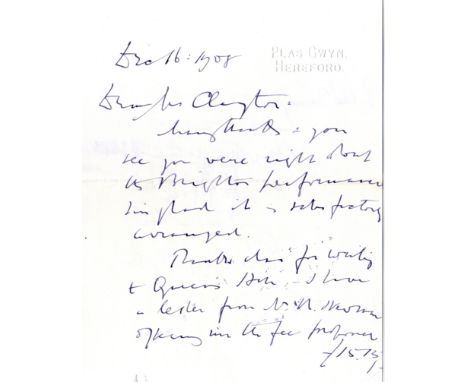 PLAS GWYN,
HEREFORD.
Dec 16: 1908
Dear Mr Clayton:
Many thanks: you
see you were right about
the Brighton performance
I'm glad it is satisfactorily
arranged.
Thanks also for writing
to Queen's Hall. I have
a letter from
offering me the fee
£15.15